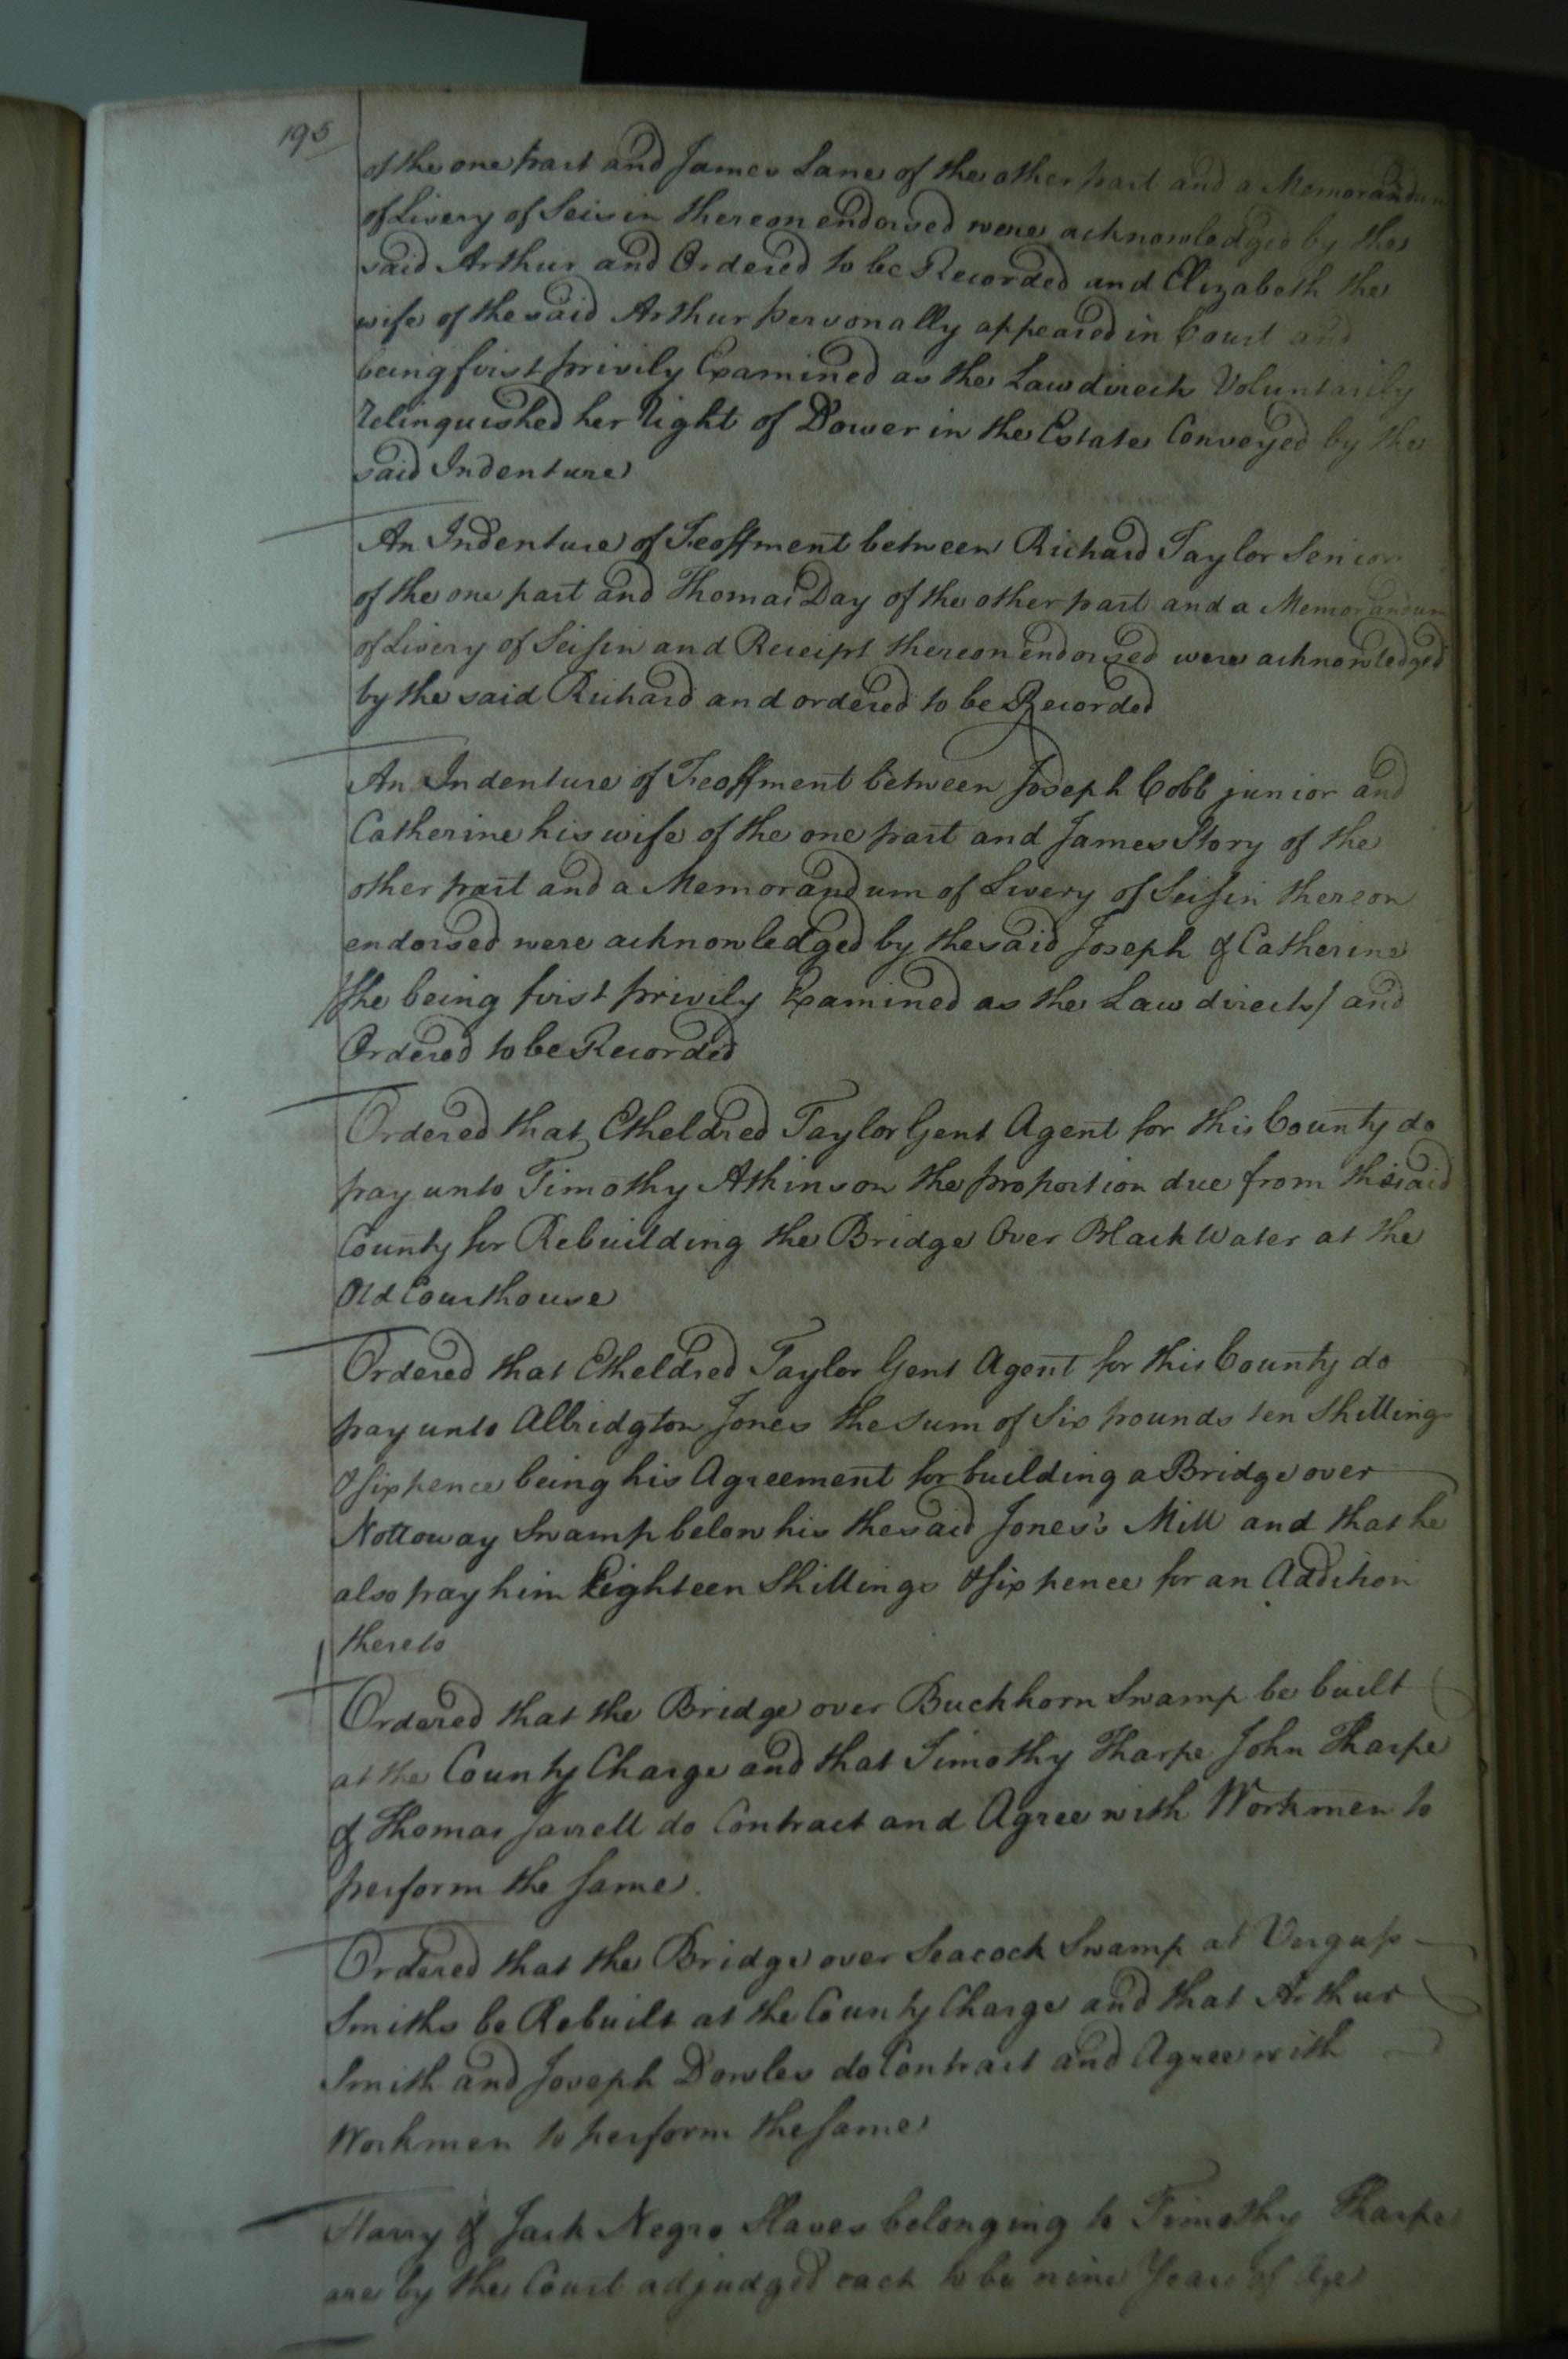 195
of the one part and James Lane of the other part and a Memorandum
of Livery of Seisin thereon endorsed were acknowledged by the
said Arthur and Ordered to be Recorded and Elizabeth the
wife of the said Arthur personally appeared in Court and
being first privily Examined as the Law directs Voluntarily
relinquished her right of Dower in the Estate Conveyed by the
said Indenture
An Indenture of Feoffment between Richard Taylor Senior
of the one part and Thomas Day of the other part and a Memorandum
of Livery of Seisin and Receipt thereon endorsed were acknowledged
by the said Richard and ordered to be Recorded
An Indenture of Feoffment between Joseph Cobb junior and
Catherine his wife of the one part and James Story of the
other part and a Memorandum of Livery of Seisin thereon
endorsed were acknowledged by the said Joseph & Catherine
/she being first privily Examined as the Law directs/ and
Ordered to be Recorded
Ordered that Etheldred Taylor Gent Agent for this County do
pay unto Timothy Atkinson the proportion due from the said
County for Rebuilding the Bridge Over Black Water at the
Old Courthouse
Ordered that Etheldred Taylor Gent Agent for this County do
pay unto Albridgton Jones the Sum of Six pounds ten Shillings
& sixpence being his Agreement for building a Bridge over
Nottoway Swamp below his the said Jones's Mill and that he
also pay him Eighteen Shillings & sixpence for an Addition
thereto
Ordered that the Bridge over Buckhorn Swamp be built
at the County Charge and that Timothy Tharpe John Tharpe
& Thomas Jarrell do Contract and Agree with Workmen to
perform the same.
Ordered that the Bridge over Seacock Swamp at
Smiths be Rebuilt at the County Charge and that Arthur
Smith and Joseph Dowles do Contract and Agree with
Workmen to perform the same
Harry & Jack Negro Slaves belonging to Timothy Tharpe
are by the Court adjudged each to be nine Years of Age